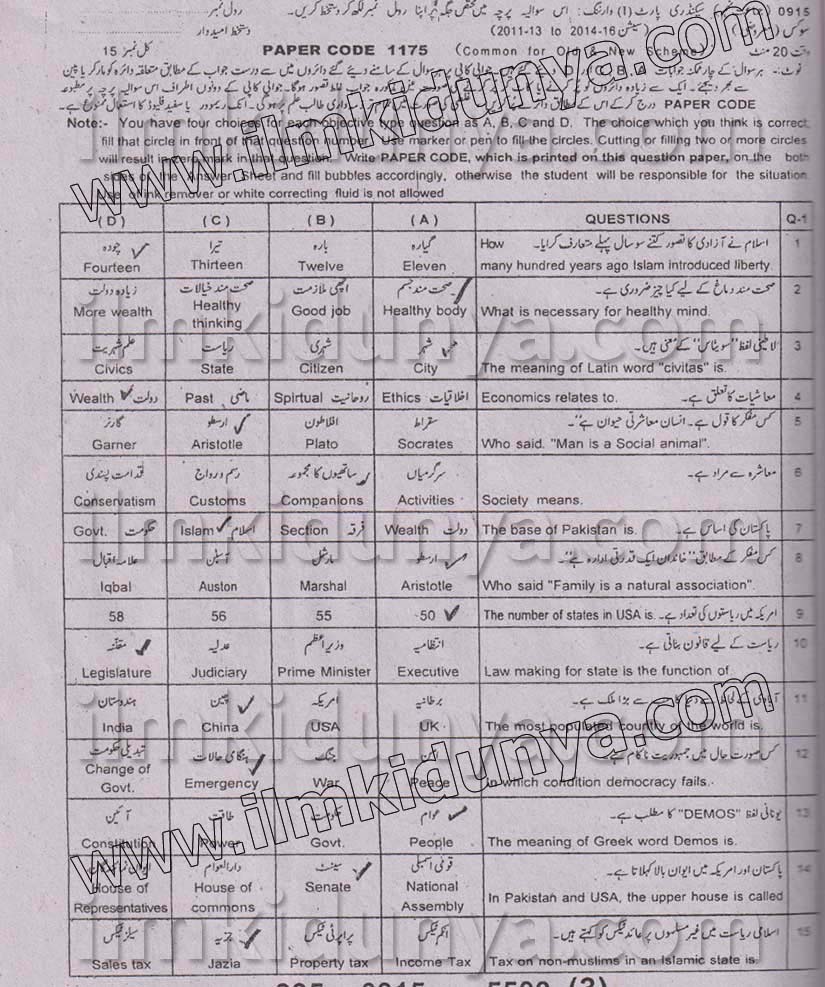 0915
سیکنڈری پارٹ (1) وارننگ: اس سوالیہ پرچہ میں مختص جگہ پر اپنا رول نمبر لکھ کر دستخط کریں۔ رول نمبر
(سیشن 2011-13 to 2014-16) دستخط امیدوار
20 منٹ (Common for Old & New Scheme) PAPER CODE 1175 کل نمبر 15
نوٹ:- ہر سوال کے چار ممکنہ جوابات
PAPER CODE درج کر کے اس کے مطابق
Note:- You have four choices for each objective type question as A, B, C and D. The choice which you think is correct,
fill that circle in front of that question number. Use marker or pen to fill the circles. Cutting or filling two or more circles
will result in zero mark in that question. Write PAPER CODE, which is printed on this question paper, on the both
sides of the Answer Sheet and fill bubbles accordingly, otherwise the student will be responsible for the situation.
Use of ink remover or white correcting fluid is not allowed
(D) (C) (B) (A) QUESTIONS Q-1
چودہ تیرا بارہ گیارہ اسلام نے آزادی کا تصور کتنے سو سال پہلے متعارف کرایا۔ How 1
Fourteen Thirteen Twelve Eleven many hundred years ago Islam introduced liberty.
زیادہ دولت صحت مند خیالات اچھی ملازمت صحت مند جسم صحت مند دماغ کے لیے کیا چیز ضروری ہے۔ 2
More wealth Healthy thinking Good job Healthy body What is necessary for healthy mind.
علم شہریت ریاست شہری شہر لاطینی لفظ "سویٹاس" کے معنی ہیں۔ 3
Civics State Citizen City The meaning of Latin word "civitas" is.
Wealth دولت Past ماضی Spirtual روحانیت Ethics اخلاقیات Economics relates to. معاشیات کا تعلق ہے۔ 4
گارنر ارسطو افلاطون سقراط کس مفکر کا قول ہے۔ انسان معاشرتی حیوان ہے"۔ 5
Garner Aristotle Plato Socrates Who said. "Man is a Social animal".
قدامت پسندی رسم و رواج ساتھیوں کا مجموعہ سرگرمیاں معاشرہ سے مراد ہے۔ 6
Conservatism Customs Companions Activities Society means.
Govt. حکومت Islam اسلام Section فرقہ Wealth دولت The base of Pakistan is. پاکستان کی اساس ہے۔ 7
علامہ اقبال آسٹن مارشل ارسطو کس مفکر کے مطابق "خاندان ایک قدرتی ادارہ ہے"۔ 8
Iqbal Auston Marshal Aristotle Who said "Family is a natural association".
58 56 55 50 The number of states in USA is. امریکہ میں ریاستوں کی تعداد ہے۔ 9
مقننہ عدلیہ وزیراعظم انتظامیہ ریاست کے لیے قانون بناتی ہے۔ 10
Legislature Judiciary Prime Minister Executive Law making for state is the function of.
ہندوستان چین امریکہ برطانیہ آبادی کے لحاظ سے دنیا کا سب سے بڑا ملک ہے۔ 11
India China USA UK The most populated country of the world is.
تبدیلی حکومت ہنگامی حالات جنگ امن کس صورت حال میں جمہوریت ناکام 12
Change of Govt. Emergency War Peace In which condition democracy fails.
آئین طاقت حکومت عوام یونانی لفظ "DEMOS" کا مطلب ہے۔ 13
Constitution Power Govt. People The meaning of Greek word Demos is.
ایوان نمائندگان دارالعوام سینٹ قومی اسمبلی پاکستان اور امریکہ میں ایوان بالا کہلاتا ہے۔ 14
House of Representatives House of commons Senate National Assembly In Pakistan and USA, the upper house is called
سیلز ٹیکس جزیہ پراپرٹی ٹیکس انکم ٹیکس اسلامی ریاست میں غیر مسلموں پر عائد ٹیکس کو کہتے ہیں۔ 15
Sales tax Jazia Property tax Income Tax Tax on non-muslims in an Islamic state is.
www.ilmkidunya.com
www.ilmkidunya.com
ilmkidunya.com
ilmkidunya.com
ilmkidunya.com
ilmkidunya.com